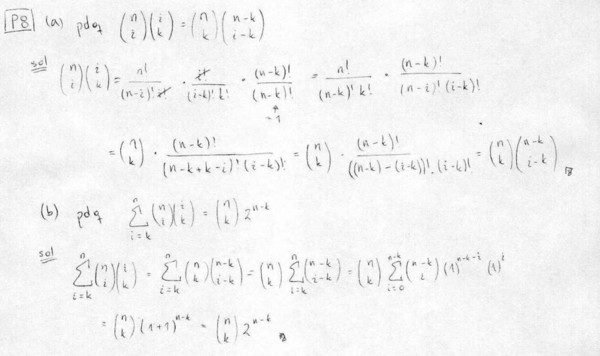 P8 (a) pdq $\binom{n}{i}\binom{i}{k} = \binom{n}{k}\binom{n-k}{i-k}$
sol $\binom{n}{i}\binom{i}{k} = \frac{n!}{(n-i)!\,i!} \cdot \frac{i!}{(i-k)!\,k!} \cdot \frac{(n-k)!}{(n-k)!} = \frac{n!}{(n-k)!\,k!} \cdot \frac{(n-k)!}{(n-i)!\,(i-k)!}$
↑
=1
$= \binom{n}{k} \cdot \frac{(n-k)!}{(n-k+k-i)!\,(i-k)!} = \binom{n}{k} \cdot \frac{(n-k)!}{((n-k)-(i-k))! \cdot (i-k)!} = \binom{n}{k}\binom{n-k}{i-k}$
(b) pdq $\sum_{i=k}^{n} \binom{n}{i}\binom{i}{k} = \binom{n}{k} 2^{n-k}$
sol
$\sum_{i=k}^{n} \binom{n}{i}\binom{i}{k} = \sum_{i=k}^{n} \binom{n}{k}\binom{n-k}{i-k} = \binom{n}{k} \sum_{i=k}^{n} \binom{n-k}{i-k} = \binom{n}{k} \sum_{i=0}^{n-k} \binom{n-k}{i} (1)^{n-k-i} (1)^{i}$
$= \binom{n}{k} (1+1)^{n-k} = \binom{n}{k} 2^{n-k}$